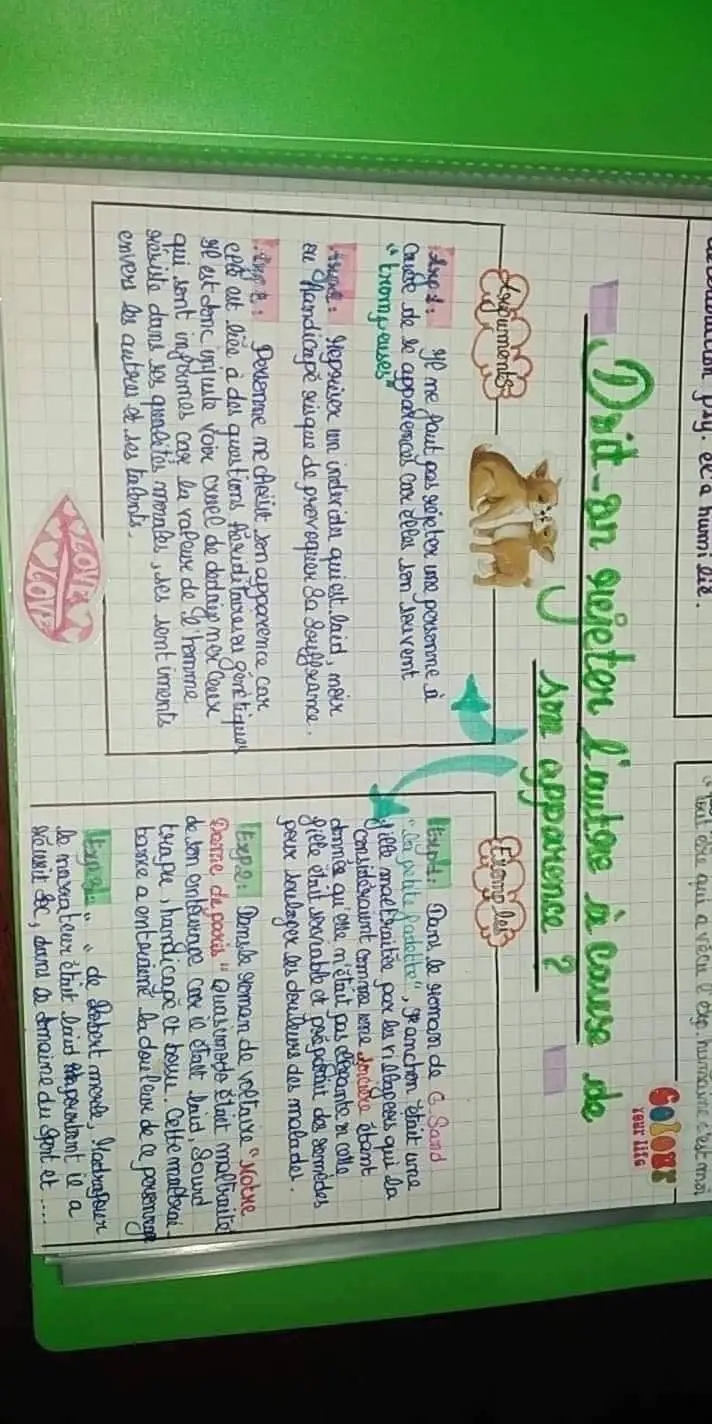 psy. et a humilié.
Tout être qui a vécu l'exp. humaine c'est moi
COLOUR
YOUR LIFE
Doit-on rejeter l'autre à cause de
son apparence ?
Arguments
Arg 1: Il ne faut pas rejeter une personne à
cause de se apparences car elles son souvent
"trompeuses"
Mépriser un individu qui est laid, noir
ou handicapé risque de provoquer sa souffrance.
Arg 2: Personne ne choisit son apparence car
cela est liée à des questions héréditaire ou génétiques
Il est donc injuste voir cruel de dédaigner ceux
qui sont informes car la valeur de l'homme
réside dans ses qualités morales, ses sentiments
envers les autres et ses talents.
LOVE
LOVE
Exemples
Exp 1: Dans le roman de G. Sand
"la petite fadette", Fanchon était une
fille maltraitée par les villageois qui la
considéraient comme une sorcière étant
donnée qu'elle n'était pas élégante or cette
fille était serviable et préparait des remèdes
pour soulager les douleurs des malades.
Exp 2: Dans le roman de voltaire "Notre
Dame de paris" Quasimodo était maltraité
de son entourage car il était laid, sourd
trapu, handicapé et bossu. Cette maltrai-
tance a entrainé la douleur de ce personnage
Exp 3: " " de Robert
le narrateur était laid pourtant il a
réussit dans le domaine du sport et ....